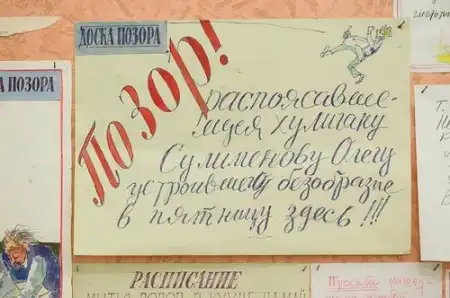 ДОСКА ПОЗОРА
Позор!
распоясавше-
муся хулигану
Сулименову Олегу
устроившему безобразие
в пятницу здесь!!!
СКА ПОЗОРА
РАСПИСАНИЕ
Просьба